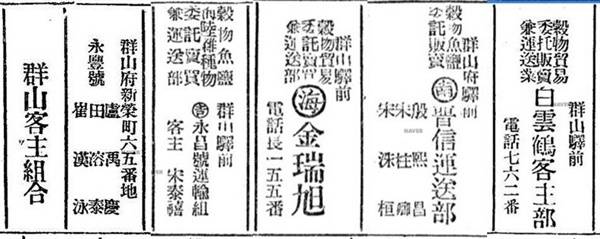 穀物貿易
委托販賣
兼運送業
群山驛前
白雲鶴客主部
電話七六二番
群山府驛前
穀物魚鹽
委託販賣
晋信運送部
殷熙昌
宋柱卿
宋洙桓
穀物貿易
委託販賣
兼運送部
群山驛前
海 金瑞旭
電話長一五五番
穀物魚鹽
海陸雜種物
委託賣買
兼運送部
群山驛前
永昌號運輸組
客主 宋泰禧
群山府新榮町六五番地
永豐號
盧禹慶
田溶泰
崔漢泳
群山客主組合